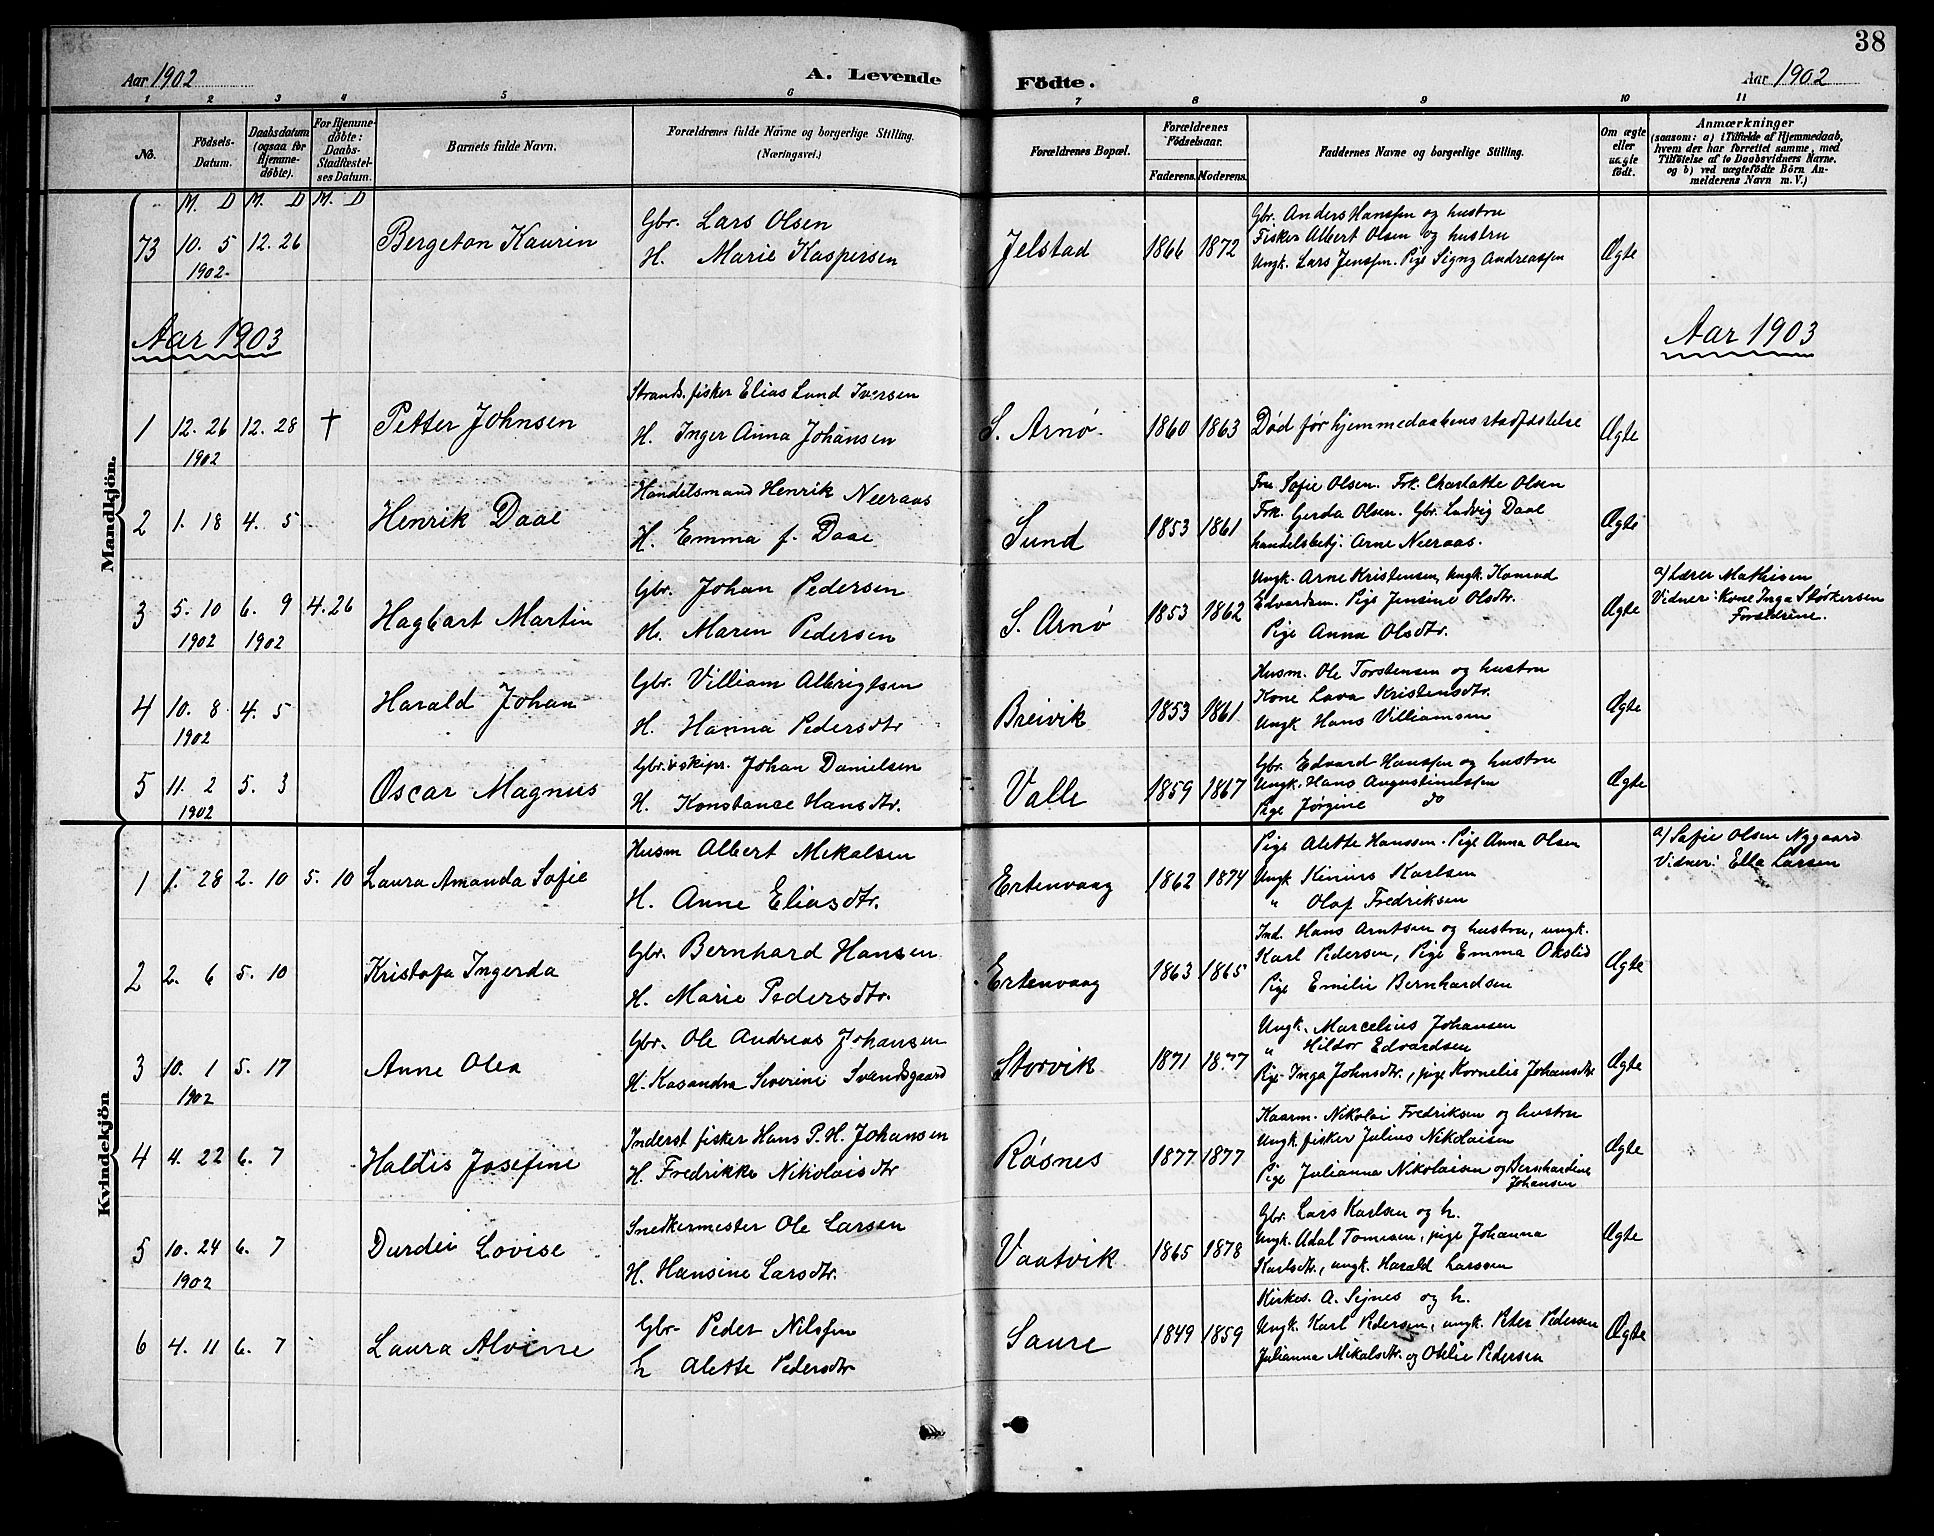 38
Aar 1902
A. Levende Födte.
Aar 1902
1 2 3 4 5 6 7 8 9 10 11
No.
Födsels-Datum.
Daabsdatum (ogsaa for Hjemme-döbte).
For Hjemme-döbte: Daabs-Stadfæstel-ses Datum.
Barnets fulde Navn.
Forældrenes fulde Navne og borgerlige Stilling. (Næringsvei.)
Forældrenes Bopæl.
Forældrenes Födselsaar.
Faderens. Moderens.
Faddernes Navne og borgerlige Stilling.
Om ægte eller uægte födt.
Anmærkninger (saasom: a) i Tilfælde af Hjemmedaab, hvem der har forrettet samme, med Tilföielse af to Daabsvidners Navne. og b) ved uægtefödte Börn An-melderens Navn m. V.)
M. D M. D M. D
Mandkjön.
73 10. 5 1902 12. 26 Bergeton Kaurin
Gbr. Lars Olsen
H. Marie Kaspersen
Jelstad 1866 1872
Gbr. Anders Hanssen og hustru
Fisker Albert Olsen og hustru
Ungk. Lars Jenssen. Pige Signy Andreassen
Ægte
Aar 1903
Aar 1903
1 12. 26 1902 12. 28 † Petter Johnsen
Strands. fisker Elias Lund Iversen
H. Inger Anna Johansen
S. Arnø. 1860 1863
Død før hjemmedaabens stadfæstelse
Ægte
2 1. 18 4. 5 Henrik Daae
Handelsmand Henrik Neeraas
H. Emma f. Daae
Sund 1853 1861
Fru Sofie Olsen. Frk. Charlotte Olsen
Frk. Gerda Olsen. Gbr. Ludvig Daae
handelsbetj. Arne Neeraas.
Ægte
3 5. 10 1902 6. 9 1902 4. 26 Hagbart Martin
Gbr. Johan Pedersen
H. Maren Pedersen
S. Arnø 1853 1862
Ungk. Arne Kristensen, Ungk. Konrad
Edvardsen. Pige Jensine Olsdtr.
Pige Anna Olsdtr.
Ægte
a/ Lærer Mathisen
Vidner: Kone Inga Størkersen
Forældrene.
4 10. 8 1902 4. 5 Harald Johan
Gbr. Villiam Albrigtsen
H. Hanna Pedersdtr
Breivik 1853 1861
Husm. Ole Torstensen og hustru
Kone Lava Kristensdtr.
Ungk Hans Villiamsen
Ægte
5 11. 2 1902 5. 3 Oscar Magnus
Gbr. skipr. Johan Danielsen
H. Konstanse Hansdtr.
Valle 1859 1867
Gbr. Edvard Hanssen og hustru
Ungk. Hans Augustinussen
Pige Jørgine do
Ægte
Kvindekjön
1 1. 28 2. 10 5. 10 Laura Amanda Sofie
Husm Albert Mikalsen
H. Anne Eliasdtr.
Ertenvaag 1862 1874
Pige Alette Hanssen. Pige Anna Olsen
Ungk Kinius Karlsen
" Olaf Fredriksen
a/ Sofie Olsen Nygaard
Vidner: Ella Larsen
2 2. 6 5. 10 Kristofa Ingerda
Gbr. Bernhard Hansen
H. Marie Pedersdtr.
Ertenvaag 1863 1865
Ind. Hans Arntsen og hustru, ungk.
Karl Pedersen, Pige Emma Okslid
Pige Emilie Bernhardsen
Ægte
3 10. 1 1902 5. 17 Anne Olea
Gbr. Ole Andreas Johansen
H. Kasandra Severine Svendsgaard
Storvik 1871
Ungk. Marcelius Johansen
" Hildor Edvardsen
Pige Inga Johnsdtr., pige Kornelie Johansdtr
Ægte
4 4. 22 6. 7 Haldis Josefine
Inderst fisker Hans P. H. Johansen
H. Fredrikke Nikolaisdtr
Røsnes 1877 1877
Kaarm. Nikolai Fredriksen og hustru
Ungk. fisker Julius Nikolaisen
Pige Julianna Nikolaisen og Bernhardine
Johansen
Ægte
5 10. 24 1902 6. 7 Durdei Lovise
Snedkermester Ole Larsen
H. Hansine Larsdtr.
Vaatvik 1865 1878
Gbr. Lars Karlsen og h.
Ungk. Adal Tomesen, pige Johanna
Karlsdtr., ungk. Harald Larssen
Ægte
6 4. 11 6. 7 Laura Alvine
Gbr. Peder Nilssen
h Alette Pedersdtr
Saure 1849 1859
Kirkes. A. Sejnes og h.
Ungk. Karl Pedersen, ungk. Peter Pedersen
Julianna Mikalsdtr. og Otelie Pedersen
Ægte